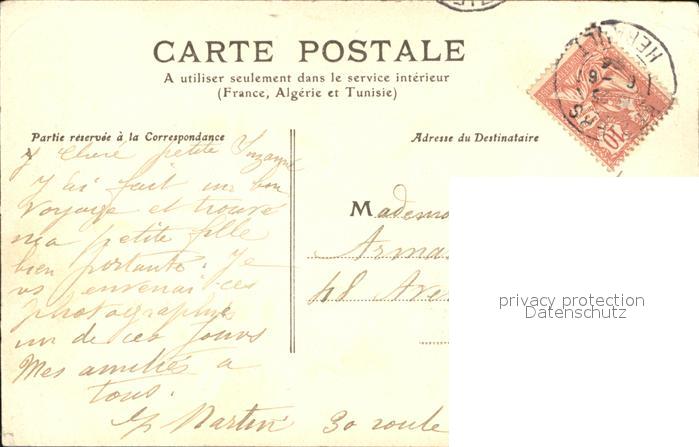 CARTE POSTALE
A utiliser seulement dans le service intérieur
(France, Algérie et Tunisie)
Partie réservée à la Correspondance
Adresse du Destinataire
Chère petite Suzanne
J'ai fait un bon
voyage et trouvé
ma petite fille
bien portante. Je
vs envenai ces
photographies
un de ces jours
Mes amitiés a
tous.
Martin
30 route
Mademo
Armas
48 Ave
10
privacy protection
Datenschutz